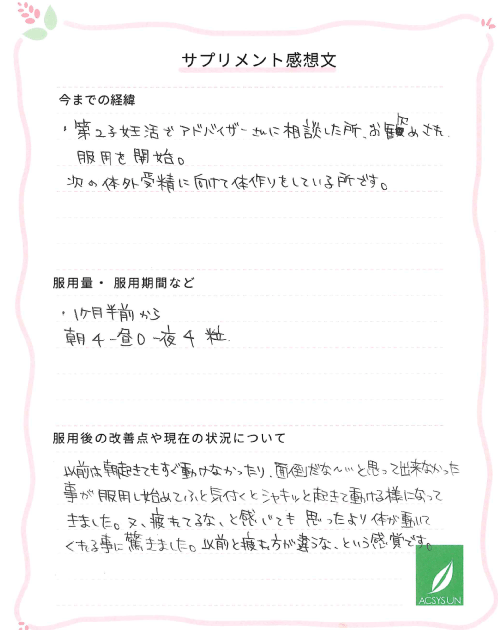 サプリメント感想文
今までの経緯
・第2子妊活でアドバイザーさんに相談した所、お勧めされ
服用を開始。
次の体外受精に向けて体作りをしている所です。
服用量・ 服用期間など
・1ケ月半前から
朝4-昼0-夜4 粒.
服用後の改善点や現在の状況について
以前は朝起きてもすぐ動けなかったり、面倒だな〜…と思って出来なかった
事が服用し始めてふと気付くとシャキッと起きて動ける様になって
きました。又、疲れてるな、と感じても 思ったより体が動いて
くれる事に驚きました。以前と疲れ方が違うな、という感覚です。
ACSYSUN